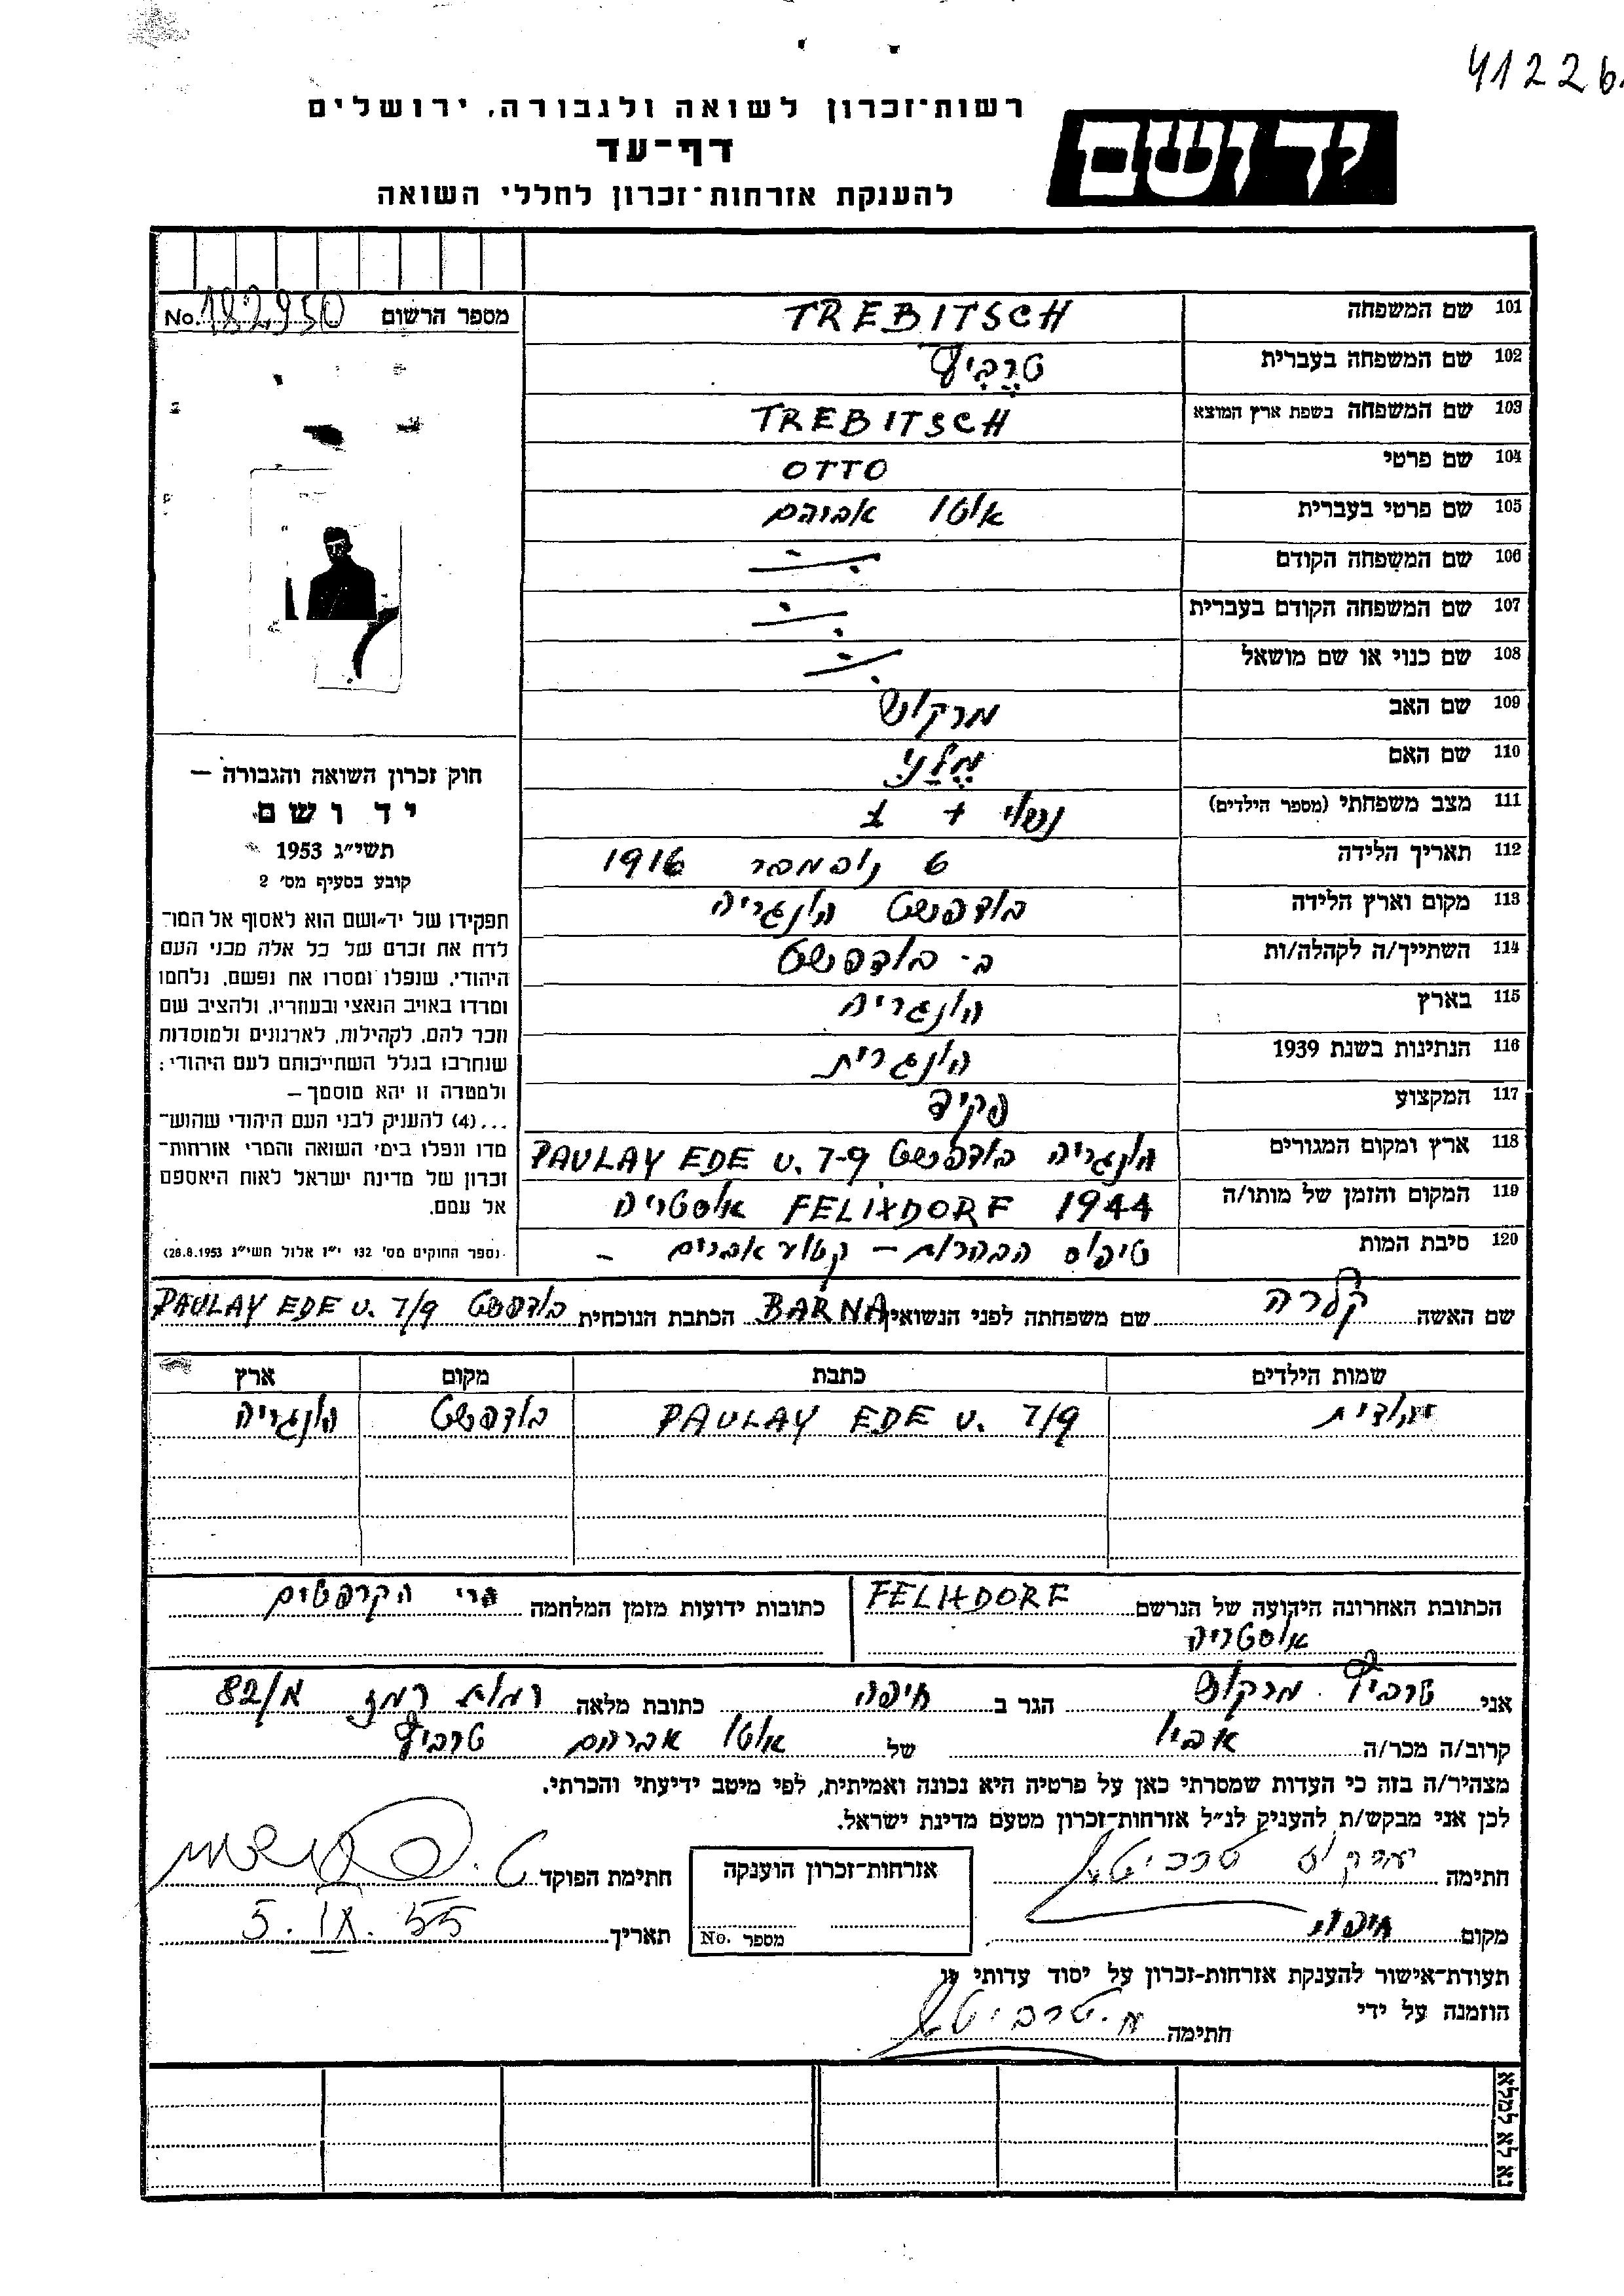 41226
רשות-זכרון לשואה ולגבורה, ירושלים
דף-עד
להענקת אזרחות-זכרון לחללי השואה
יד ושם
מספר הרשום No. 182950
101 שם המשפחה TREBITSCH
102 שם המשפחה בעברית טרביץ
103 שם המשפחה בשפת ארץ המוצא TREBITSCH
104 שם פרטי OTTO
105 שם פרטי בעברית אוטו אברהם
106 שם המשפחה הקודם
107 שם המשפחה הקודם בעברית
108 שם כנוי או שם מושאל
109 שם האב מרקוש
110 שם האם מלני
111 מצב משפחתי (מספר הילדים) נשוי + 1
112 תאריך הלידה 6 נובמבר 1916
113 מקום וארץ הלידה בודפשט הונגריה
114 השתייך/ה לקהלה/ות ב- בודפשט
115 בארץ הונגריה
116 הנתינות בשנת 1939 הונגרית
117 המקצוע פקיד
118 ארץ ומקום המגורים הונגריה בודפשט PAULAY EDE U. 7-9
119 המקום והזמן של מותו/ה 1944 FELIXDORF אוסטריה
120 סיבת המות טיפוס הבהרות –
חוק זכרון השואה והגבורה –
יד ושם
תשי״ג 1953
קובע בסעיף מס׳ 2
תפקידו של יד-ושם הוא לאסוף אל המו־
לדת את זכרם של כל אלה מבני העם
היהודי, שנפלו ומסרו את נפשם, נלחמו
ומרדו באויב הנאצי ובעוזריו, ולהציב שם
וזכר להם, לקהילות, לארגונים ולמוסדות
שנחרבו בגלל השתייכותם לעם היהודי;
ולמטרה זו יהא מוסמך –
...(4) להעניק לבני העם היהודי שהוש־
מדו ונפלו בימי השואה והמרי אזרחות־
זכרון של מדינת ישראל לאות היאספם
אל עמם.
(ספר החוקים מס׳ 132 י״ז אלול תשי״ג 28.8.1953)
שם האשה קלרה שם משפחתה לפני הנשואין BARNA הכתבת הנוכחית בודפשט PAULAY EDE U. 7/9
שמות הילדים כתבת מקום ארץ
יהודית PAULAY EDE U. 7/9 בודפשט הונגריה
הכתובת האחרונה הידועה של הנרשם FELIXDORF כתובות ידועות מזמן המלחמה הרי הקרפטים
אוסטריה
אני טרביץ מרקוש הגר ב חיפה כתובת מלאה רמת רמז 82/א
קרוב/ה מכר/ה אביו של אוטו אברהם טרביץ
מצהיר/ה בזה כי העדות שמסרתי כאן על פרטיה היא נכונה ואמיתית, לפי מיטב ידיעתי והכרתי.
לכן אני מבקש/ת להעניק לנ״ל אזרחות-זכרון מטעם מדינת ישראל.
חתימה אזרחות-זכרון הוענקה חתימת הפוקד
מקום חיפה מספר No. תאריך 5. IX. 55
תעודת-אישור להענקת אזרחות-זכרון על יסוד עדותי זו
הוזמנה על ידי
חתימה מ. טרביטש
נא לא למלא